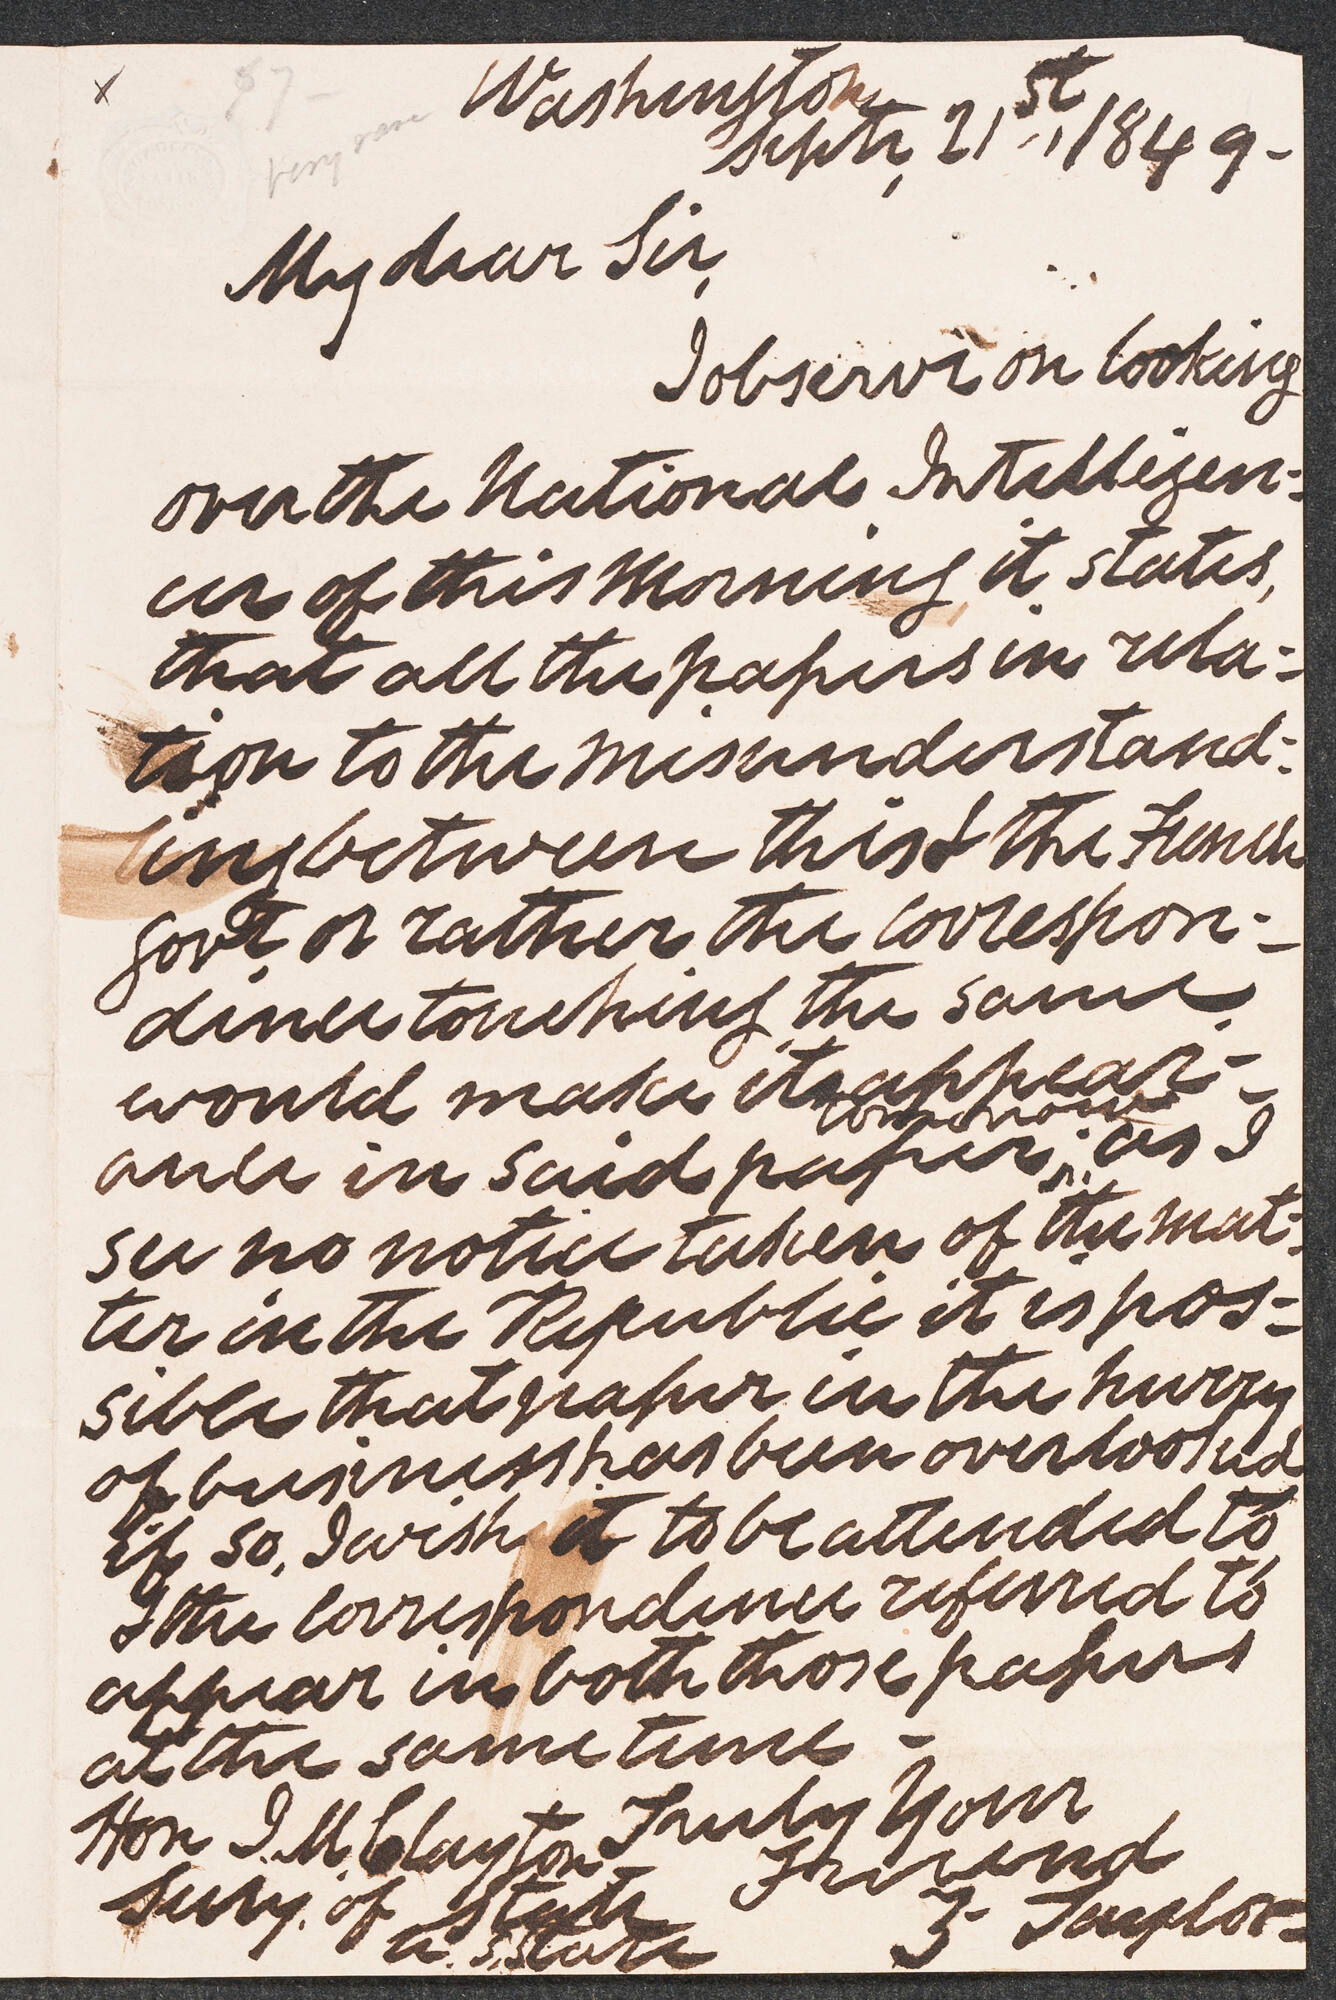 x
$7-
very rare
Washington
Septr, 21st, 1849-
My dear Sir,
I observe on looking
over the National Intelligen-
cer of this morning it states,
that all the papers in rela-
tion to the misunderstand-
ing between this & the French
govt. or rather the correspon-
dence touching the same
would make its appear-
tomorrow
ance in said paper; as I
see no notice taken of the mat-
ter in the Republic it is pos-
sible that paper in the hurry
of business has been overlooked
if so, I wish it to be attended to
& the correspondence referred to
appear in both those papers
at the same time -
Truly Your
Friend
Z Taylor-
Hon J. M. Clayton
Secry. of State
U. S. State